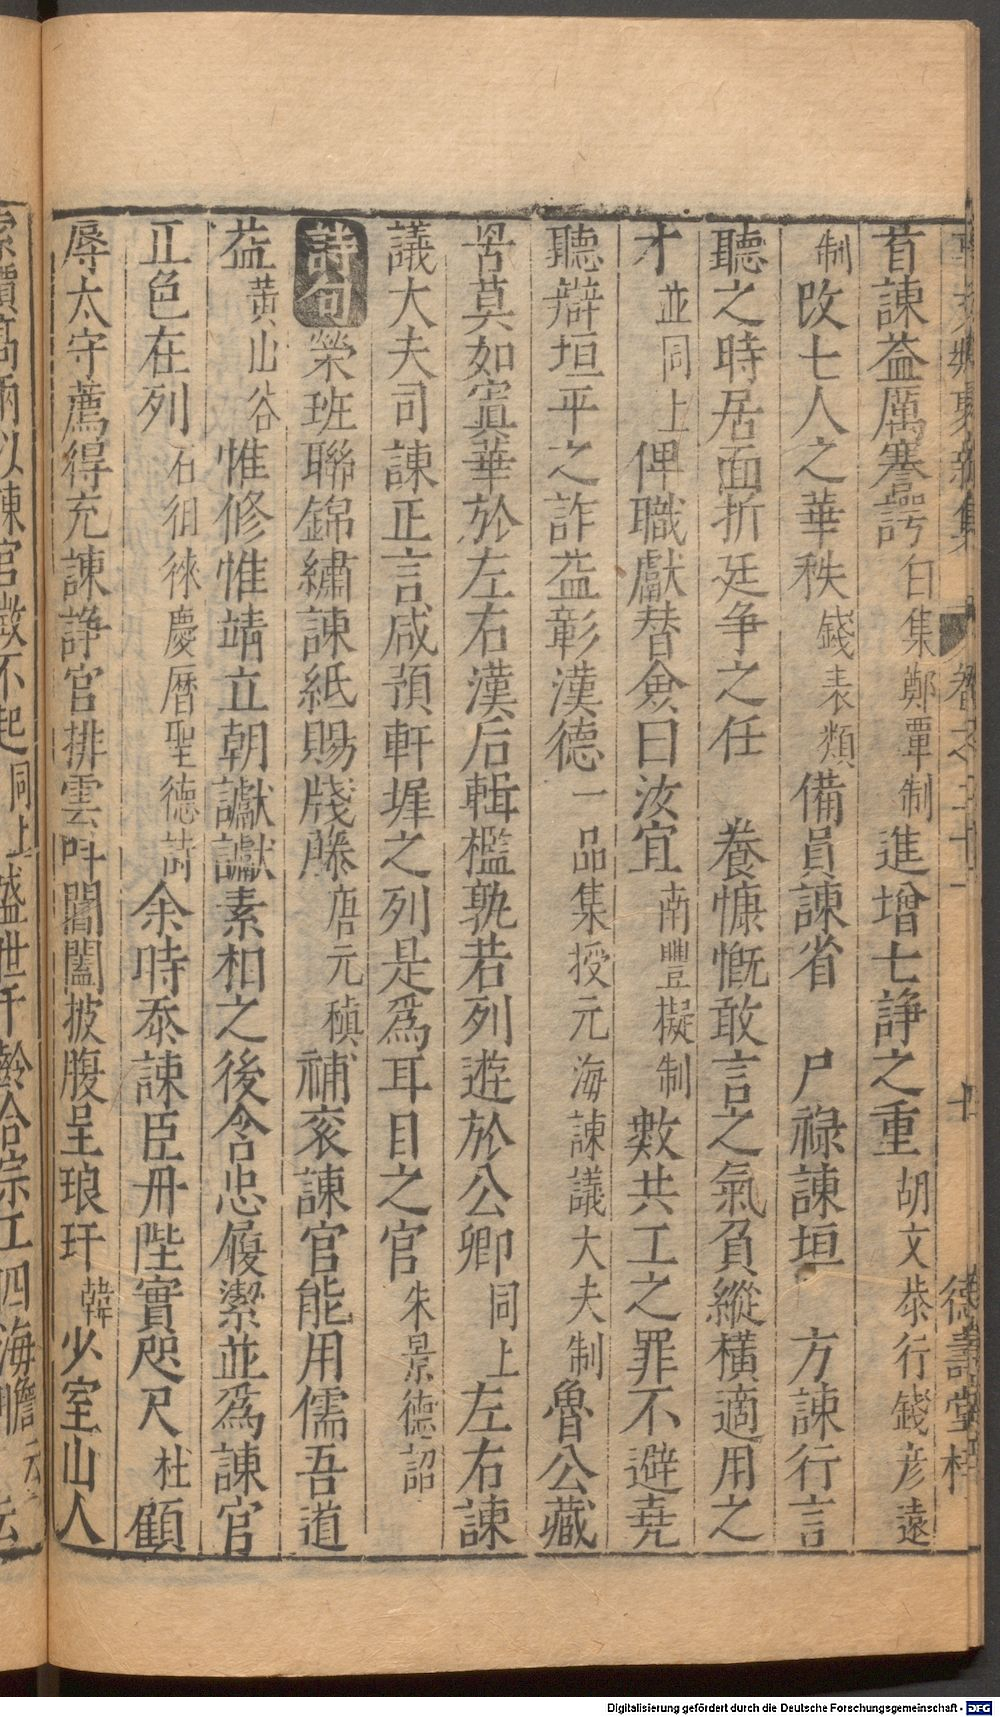 首諫益厲謇諤白集鄭覃制進增七諍之重胡文恭行錢彥遠
制改七人之華秩錢表類備員諫省 尸祿諫垣 方諫行言
聽之時居面折廷争之任 養慷慨敢言之氣負縱橫適用之
才並同上俾職獻替僉曰汝宜南豐擬制數共工之罪不避堯
聽辯垣平之詐益彰漢德一品集授元海諫議大夫制魯公藏
罟莫如寘華於左右漢后輯檻孰若列遊於公卿同上左右諫
議大夫司諫正言咸預軒墀之列是爲耳目之官朱景德詔
詩句榮班聯錦繡諫紙賜牋藤唐元稹補衮諫官能用儒吾道
益黄山谷惟修惟靖立朝讞讞素相之後含忠履潔並爲諫官
正色在列石徂徠慶曆聖德詩余時忝諫臣丹陛實咫尺杜顧
辱太守薦得充諫諍官排雲叫閶闔披腹呈琅玕韓少室山人
索價高兩以諫官徵不起同上盛世千齡合宗工四海瞻
卷之二十一
十
德壽堂梓
Digitalisierung gefördert durch die Deutsche Forschungsgemeinschaft - DFG